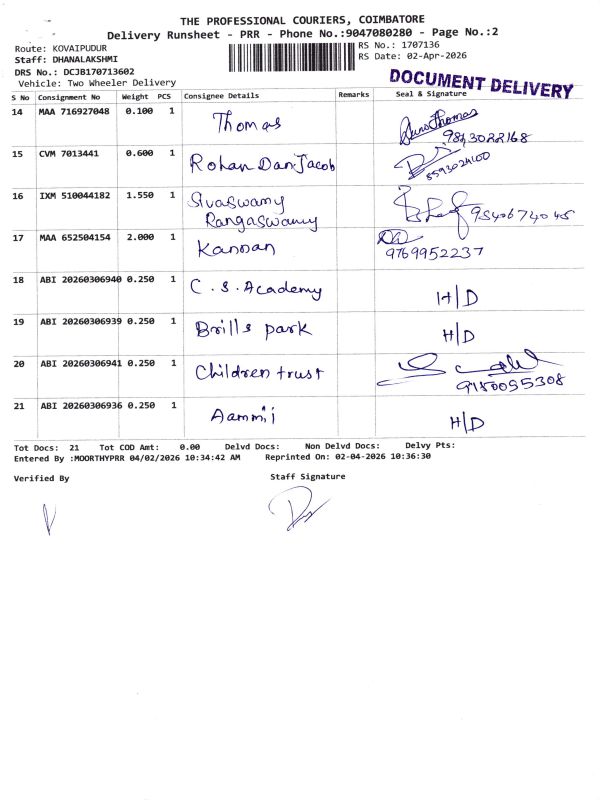 THE PROFESSIONAL COURIERS, COIMBATORE
Delivery Runsheet - PRR - Phone No.:9047080280 - Page No.:2
Route: KOVAIPUDUR RS No.: 1707136
Staff: DHANALAKSHMI RS Date: 02-Apr-2026
DRS No.: DCJB170713602
Vehicle: Two Wheeler Delivery
DOCUMENT DELIVERY
S No Consignment No Weight PCS Consignee Details Remarks Seal & Signature
14 MAA 716927048 0.100 1 Thomas Thomas
9843022168
15 CVM 7013441 0.600 1 Rohan Dan Jacob 8593024100
16 IXM 510044182 1.550 1 Sivaswamy
Rangaswamy 9540674045
17 MAA 652504154 2.000 1 Kannan 9769952237
18 ABI 20260306940 0.250 1 C.S. Academy H/D
19 ABI 20260306939 0.250 1 Brills park H/D
20 ABI 20260306941 0.250 1 Children trust 9150095308
21 ABI 20260306936 0.250 1 Aammii H/D
Tot Docs: 21 Tot COD Amt: 0.00 Delvd Docs: Non Delvd Docs: Delvy Pts:
Entered By :MOORTHYPRR 04/02/2026 10:34:42 AM Reprinted On: 02-04-2026 10:36:30
Verified By Staff Signature